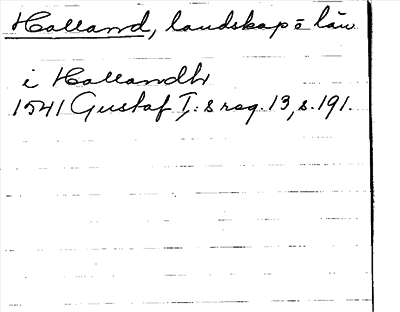 Halland, landskap o län
i Hallandh
1541 Gustaf I:s reg. 13, s. 191.